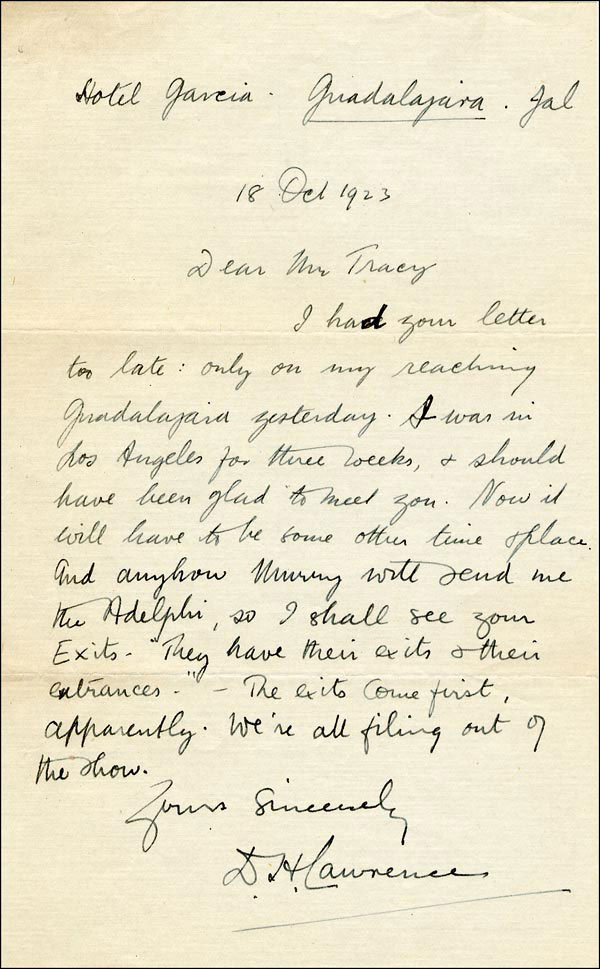 Hotel Garcia. Guadalajara. Jal
18 Oct 1923
Dear Mr Tracy
I had your letter
too late: only on my reaching
Guadalajara yesterday. I was in
Los Angeles for three weeks, & should
have been glad to meet you. Now it
will have to be some other time & place.
And anyhow Murry will send me
the Adelphi, so I shall see your
Exits - "They have their exits & their
entrances." - The exits come first,
apparently. We're all filing out of
the show.
Yours Sincerely
D. H. Lawrence